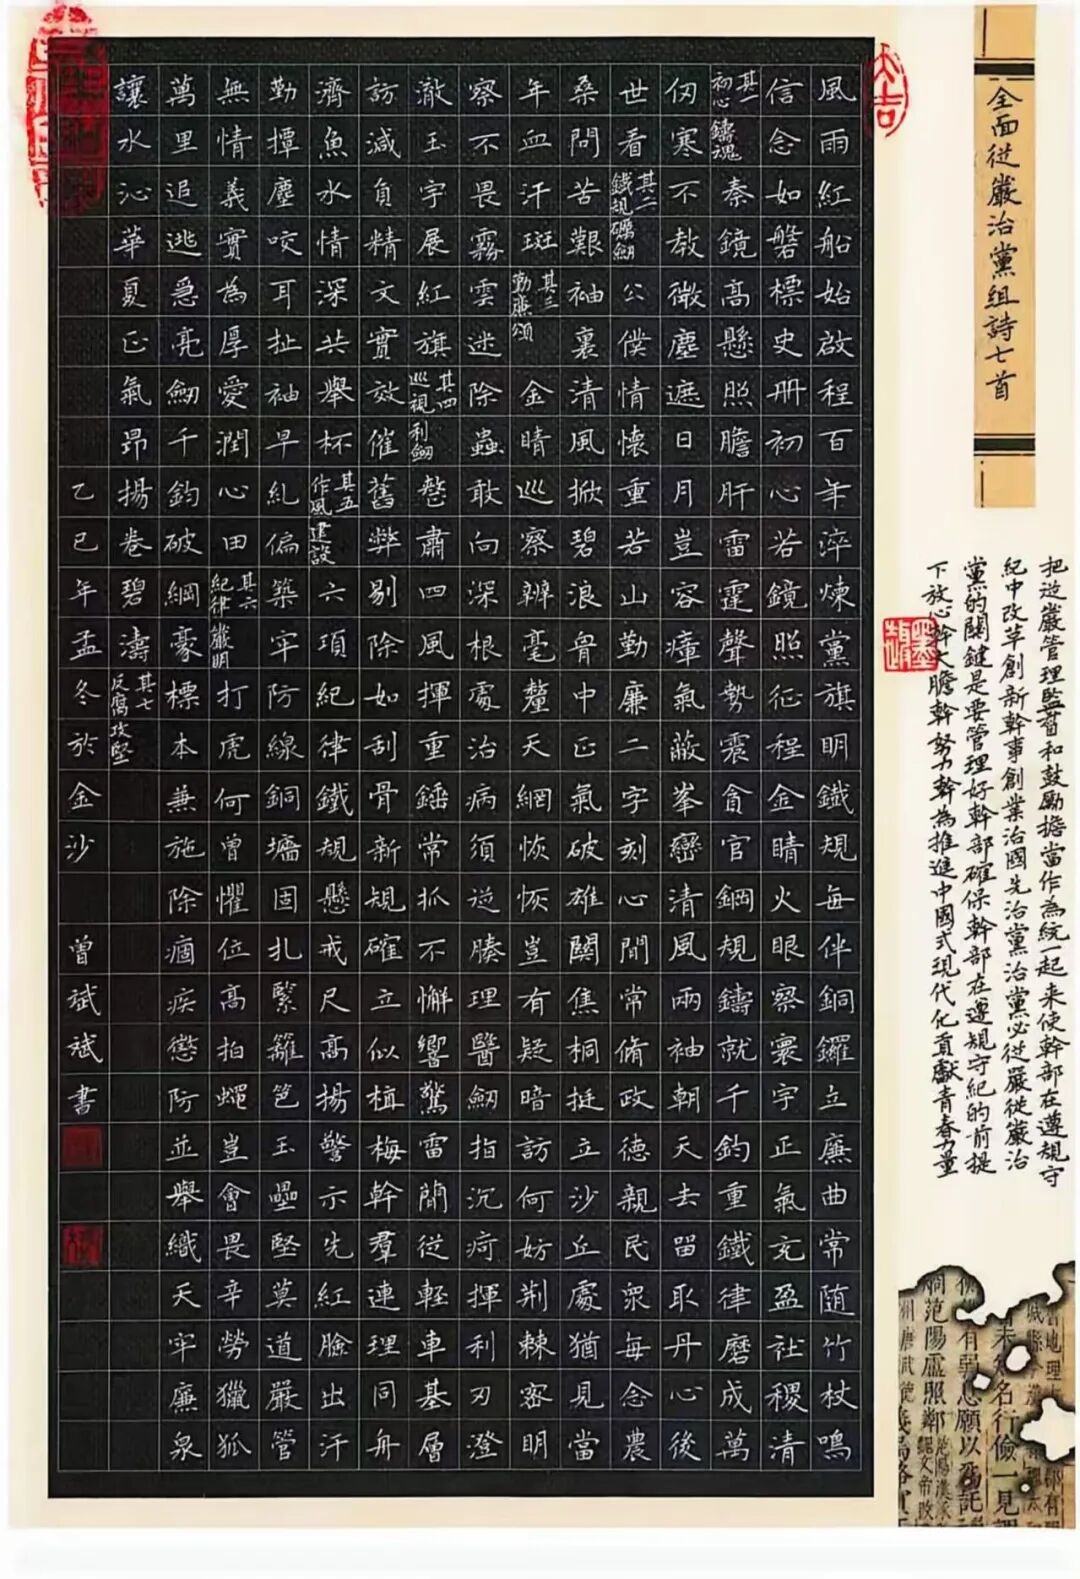 全面從嚴治黨組詩七首
把從嚴管理監督和鼓勵擔當作為統一起来使幹部在遵規守
紀中改革創新幹事創業治國先治黨治黨必從嚴從嚴治
黨的關鍵是要管理好幹部確保幹部在遵規守紀的前提
下放心幹大膽幹努力幹為推進中國式現代化貢獻青春力量
大吉
風雨紅船始啟程百年淬煉黨旗明鐵規每伴銅鑼立廉曲常随竹杖鳴
信念如磐標史册初心若鏡照征程金睛火眼察寰宇正氣充盈社稷清
其一初心鑄魂秦鏡高懸照膽肝雷霆聲勢震貪官鋼規鑄就千鈞重鐵律磨成萬
仞寒不教微塵遮日月豈容瘴氣蔽峯巒清風兩袖朝天去留取丹心後
世看其二鐵規礪劒公僕情懷重若山勤廉二字刻心間常脩政德親民眾每念農
桑問苦艱袖裏清風掀碧浪胷中正氣破雄關焦桐挺立沙丘處猶見當
年血汗斑其三勤廉頌金睛巡察辨毫釐天網恢恢豈有疑暗訪何妨荆棘密明
察不畏霧雲迷除蟲敢向深根處治病須從腠理醫劒指沉疴揮利刃澄
澈玉宇展紅旗其四巡視利劒整肅四風揮重錘常抓不懈響驚雷簡從輕車基層
訪減負精文實效催舊弊剔除如刮骨新規確立似植梅幹羣連理同舟
濟魚水情深共舉杯其五作風建設六項紀律鐵規懸戒尺高揚警示先紅臉出汗
勤撣塵咬耳扯袖早糺偏築牢防線銅墻固扎緊籬笆玉壘堅莫道嚴管
無情義實為厚愛潤心田其六紀律嚴明打虎何曾懼位高拍蠅豈會畏辛勞獵狐
萬里追逃急亮劒千鈞破網豪標本兼施除痼疾懲防並舉織天牢廉泉
讓水沁華夏正氣昂揚卷碧濤其七反腐攻堅
乙巳年孟冬於金沙 曾斌斌書